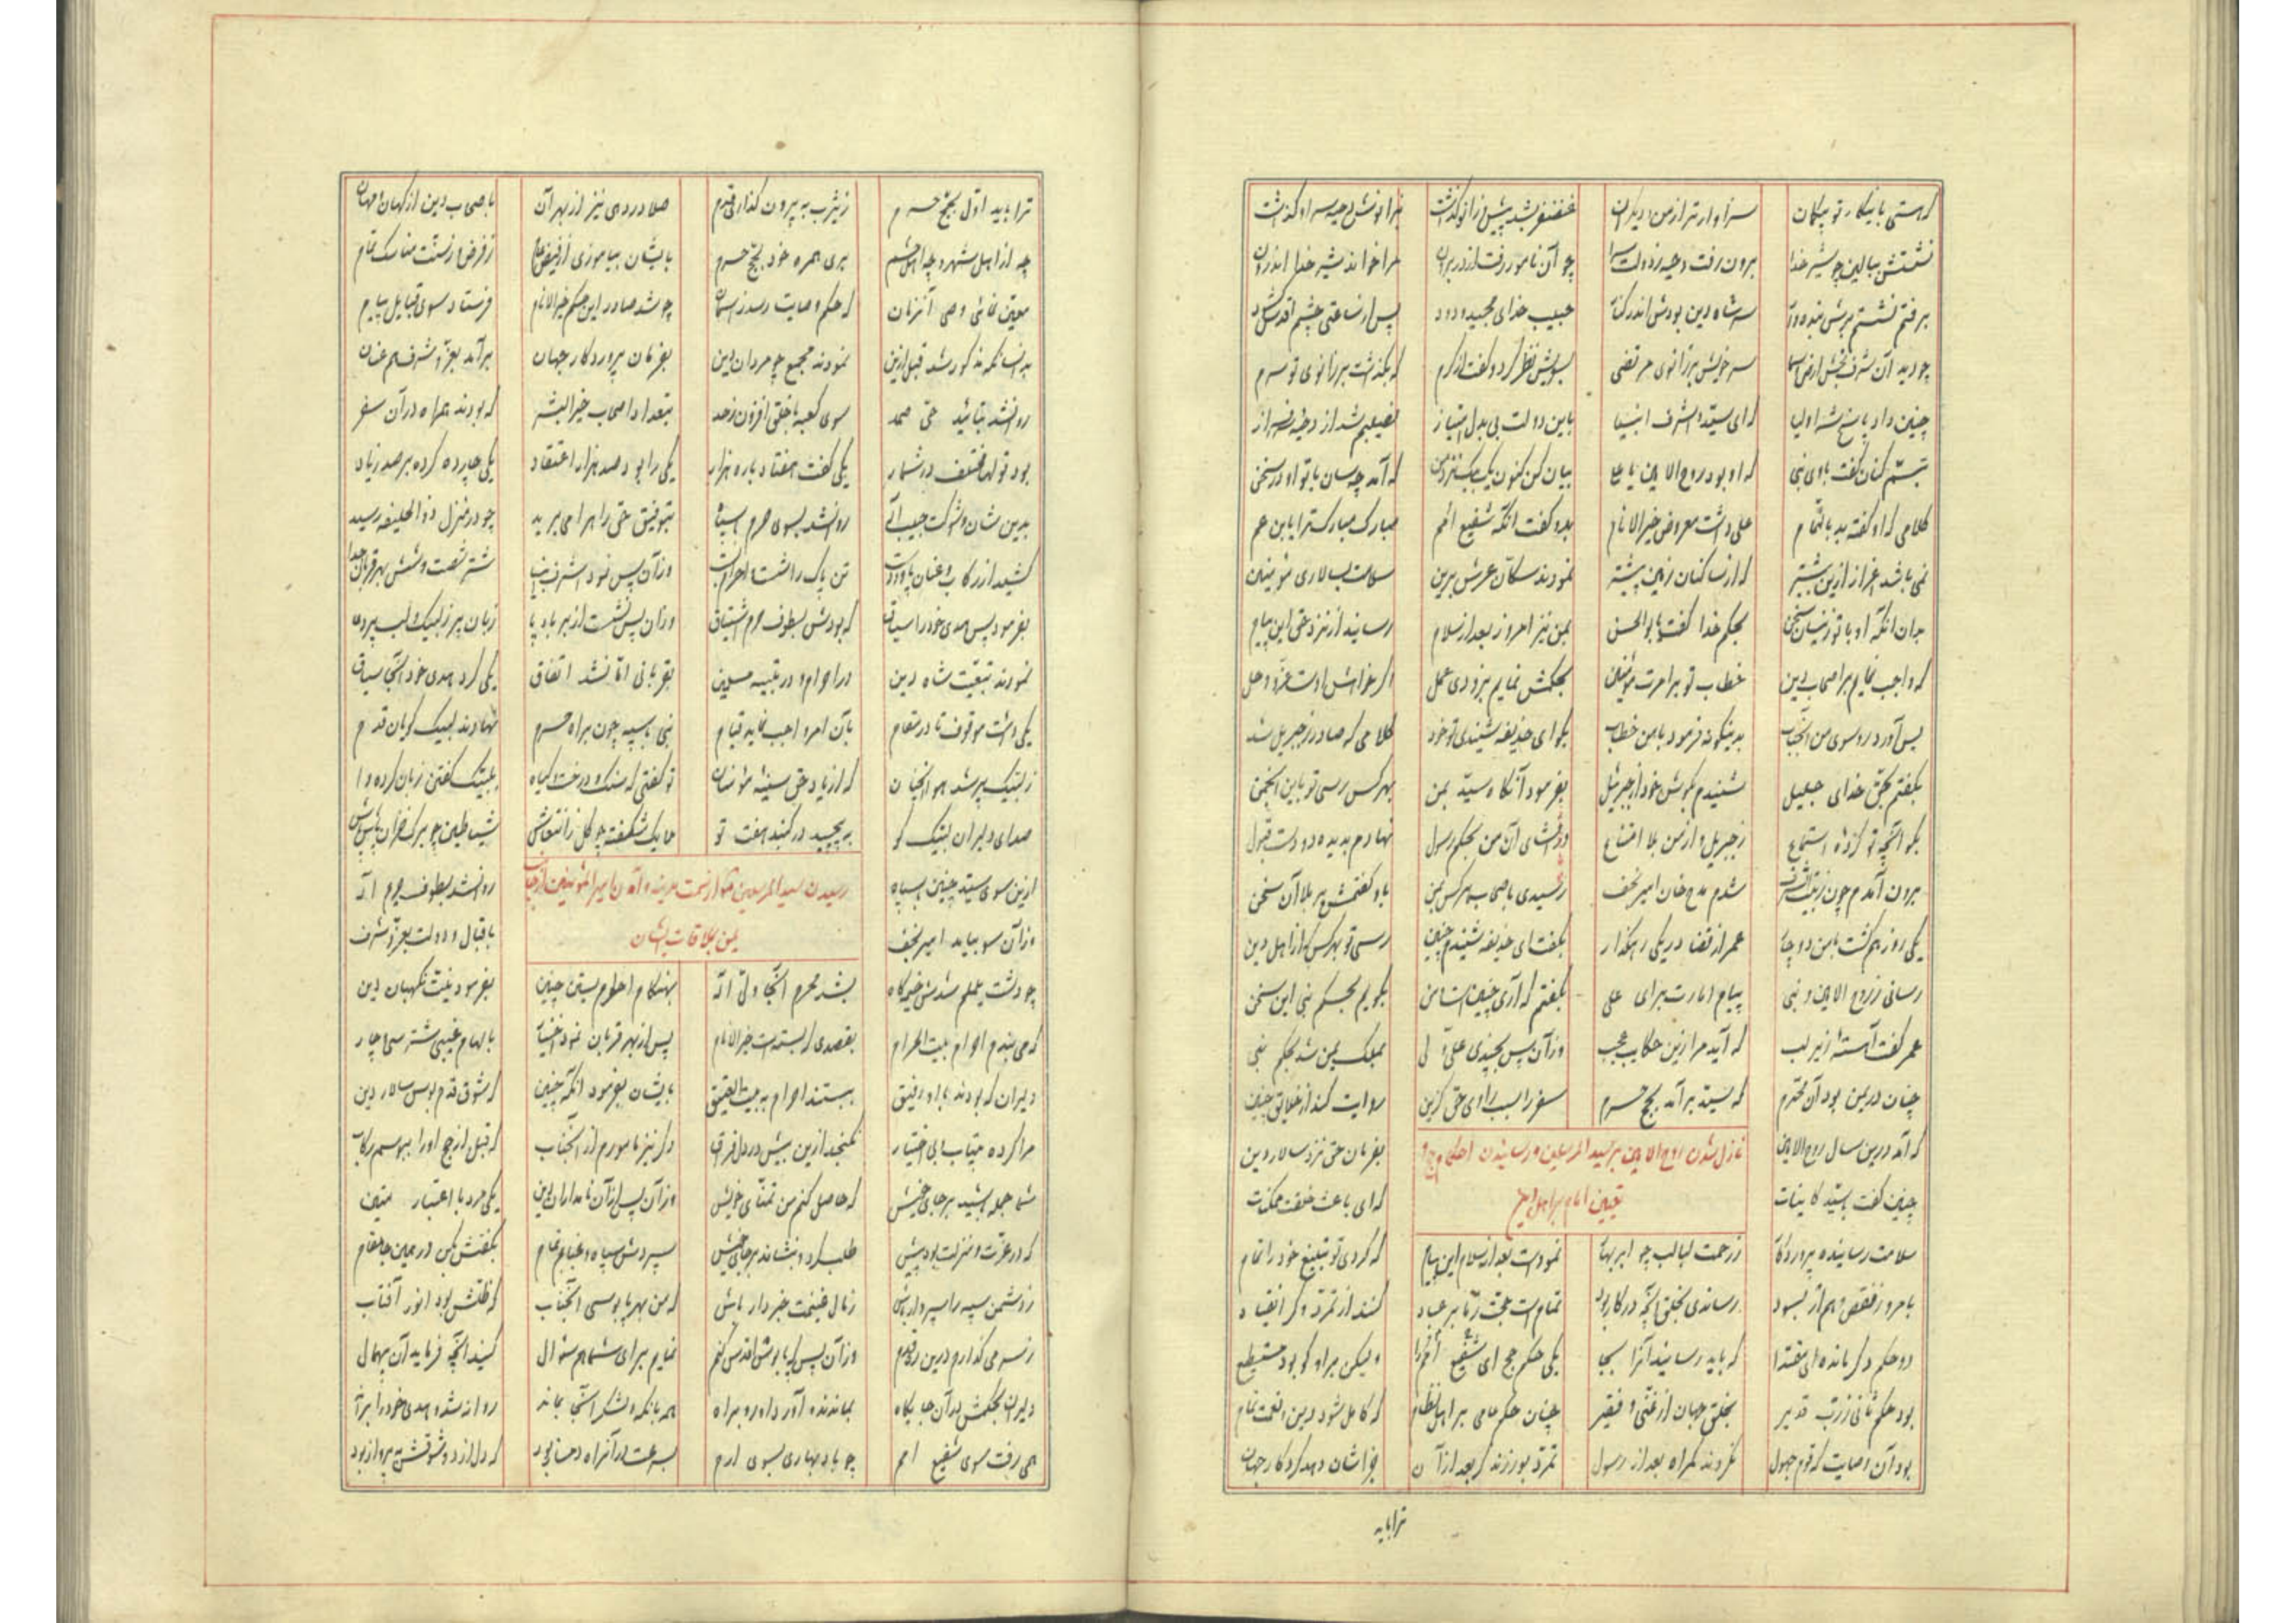 که هستی بانیکا رتو بیکمان سزاوارتر از من دیگران غضنفر بشد پیش زانو گذاشت بزانوش دحیه سر او گذاشت
نشستش ببالین چو شیر خدا برون رفت دحیه ز دولت سرا چو آن نامور رفت از در بران مرا خواند شیر خدا اندران
برفتم نشستم سر شاه دین بودش اندر کنار حبیب خدای مجید ودود پس از ساعتی چشم اقدس گشود
چو دید آن شرف بخش ارض و سما سر خویش بر زانوی مرتضی بسویش نظر کرد و گفت از کرم که بگذاشت بر زانوی تو سرم
چنین داد پاسخ شه اولیا که ای سید و اشرف انبیا باین دولت بی بدل امتیاز نصیبم شد از دحیه سرفراز
تبسم کنان گفت با وی نبی که او بود روح الامین یا علی بیان کن کنون یک بیک نزد من که آمد چسان با تو او در سخن
کلامی که او گفته بد بالتمام علی داشت معروض خیر الانام بدو گفت آنگه شفیع امم مبارک مبارک ترا یا بن عم
نمی باشد اعزاز ازین بیشتر که از ساکنان زمین پیشتر نمودند سکان عرش برین سلامت بسالاری مؤمنین
بدان آنکه او با تو زینسان سخن بحکم خدا گفت یا بوالحسن بمن نیز امروز بعد از سلام رسانید از نزد حق این پیام
که واجب نمایم بر اصحاب دین خطاب تو بر امرت مؤمنین بحکمش نمایم بزودی عمل اگر خواهش اوست عز و جل
پس آورد رو سوی من آنجناب بدینگونه فرمود با من خطاب بگو ای حذیفه شنیدی تو خود کلامی که صادر ز جبریل شد
بگفتم بحق خدای جلیل شنیدم بگوش خود از جبرئیل بفرمود آنگاه سید بمن بهرکس رسی تو باین انجمن
بگو آنچه تو کرده استماع ز جبریل و از من بلا امتناع در افشای آن من بحکم رسول نهادم بدیده دو دست قبول
برون آمدم چون ز بیت الشرف شدم مدح خوان امیر نجف رسیدی باصحاب هرکس بمن باو گفتمش برملا آن سخن
یکی روز هم گشت با من دوچار عمر از قضا در یکی رهگذار بگفت ای حذیفه شنیدم چنین رسی تو بهر کس که از اهل دین
رسانی ز روح الامین و نبی پیام امارت برای علی بگفتم که آری چنین است این بگویم بحکم نبی این سخن
عمر گفت آهسته زیر لب که آید مرا زین حکایت عجب وزآن پس بچندی علی ولی بملک یمن شد بحکم نبی
چنان در یمن بود آن محترم که سید برآمد بحج حرم سفر را سبب راوی حق گزین روایت کند از خلایق چنین
نازل شدن روح الامین بر سید المرسلین و رسانیدن احکام حج و
تعیین امام بر اهل دین
که آمد درین سال روح الامین بفرمان حق نزد سالار دین
چنین گفت سید کاینات که ای باعث خلقت ممکنات
سلامت رساننده پروردگار ز رحمت لبالب چو ابر بهار نمودست بعد از سلام این پیام که کردی تو تبلیغ خود را تمام
بامروز نقص و هم از بسود رساندی بخلق آنچه در کار بود تمام است حجت ز ما بر عباد کنند از تمرد و گر انقیاد
دو حکم دگر مانده ای مقتدا که باید رسانید آنرا بجا یکی حکم حج ای شفیع امم ولیکن بر او کو بود مستطیع
بود حکم ثانی ز رب قدیر بخلق جهان از غنی و فقیر چنان حکم حامی بر اهل نظام که کامل شود دین و نعمت تمام
بود آن وصایت که قوم جهول نگردند گمراه بعد از رسول تمرد بورزند گر بعد از آن جزاشان دهد کردگار جهان
ترا باید
ترا باید اول بحج حرم ز یثرب به بیرون گذاری قدم صلا در دهی نیز از بهر آن باصحاب دین از کهان و مهان
چه از اهل شهر و چه اهل حشم بری همره خود بحج حرم بایشان بیاموزی از فیض عام ز فرض و ز سنت مناسک تمام
معین نمائی وصی آنزمان که حکم وصایت رسد ز آسمان چو شد صادر این حکم خیر الانام فرستاد سوی قبایل پیام
بدانسانکه مذکور شد قبل ازین نمودند مجمع چو مردان دین بفرمان پروردگار جهان برآمد بعز و شرف هم عنان
روان شد بتائید حی صمد سوی کعبه با خلق افزون ز حد بتعداد اصحاب خیر البشر که بودند همراه در آن سفر
بود قولها مختلف در شمار یکی گفت هفتاد باره هزار یکی را بود صد هزار اعتقاد یکی چارده کرده بر صد زیاد
بدین شان و شوکت حبیب اله روان شد بسوی حرم با سپاه بتوفیق حق راه را می برید چو در منزل ذو الحلیفه رسید
کشید از رکاب و عنان پا و دست تن پاک را داشت احرام بست وزآن پس نمود اشرف انبیا شتر شصت و شش بهر قربان جدا
بفرمود پس هدی خود را سیاق که بودش بطوف حرم اشتیاق وزان پس نشست از بر بادپا زبان پر ز لبیک و لب پر دعا
نمودند تبعیت شاه دین در احرام و در تلبیه مسلمین بقربانی اما نشد اتفاق یکی کرد هدی خود آنجا سیاق
یکی داشت موقوف تا در مقام بآن امر واجب نماید قیام نبی با سپه چون براه حرم نهادند لبیک گویان قدم
ز لبیک پر شد هوا آنچنان که از یاد حق سینه مؤمنان تو گفتی که سنگ و درخت و گیاه بلبیک گفتن زبان کرده وا
صدای دلیران لبیک گو بپیچید در گنبد هفت تو ملایک شگفته چو گل ز انتعاش شیاطین چو برگ خزان پاش پاش
رسیدن سید المرسلین بمکه از سمت مدینه و آمدن امیر المؤمنین از جانب
یمن بملاقات ایشان
ازین سوی سید چنین با سپاه روان شد بطوف حرم اله
وزآن سو بیاید امیر نجف باقبال و دولت بعز و شرف
چو دشت یلملم شدش خیمگاه بشد محرم آنجا ولی اله بهنگام احرام بستن چنین بفرمود نیت نگهبان دین
که می بندم احرام بیت الحرام بقصدی که بستست خیر الانام پس از بهر قربان نمود اختیار بالهام غیبی شتر سی چار
دلیران که بودند با او رفیق ببستند احرام بیت العتیق بایشان بفرمود آنگه چنین که شوق قدم بوس سالار دین
مرا کرده بیتاب و بی اختیار نگنجد ازین بیش در دل فراق دگر نیز مامورم از آنجناب که قبل از حج او را ببوسم رکاب
شما جمله باشید بر جای خویش که حاصل کنم من تمنای خویش وزآن پس از آن نامداران دین یکی مرد با اعتبار متین
که در عزت و منزلت بود پیش طلب کرد و بنشاند بر جای خویش سپردش سپاه و غنایم تمام بگفتش بکن در همین جا مقام
ز دشمن سپه را سپردار باش ز مال غنیمت خبردار باش که من بهر پابوسی آنجناب که ظلش بود انور آفتاب
ز سر می گذارم درین ره قدم وزآن پس که پابوس اقدس کنم نمایم برای شما هم سؤال کنید آنچه فرماید آن بیهمال
دلیران بحکمش بدآن جایگاه بماندند و آورد او رو براه همه بنگه و لشکر آنجا بماند روانه شد و هدی خود را براند
همی رفت سوی شفیع امم چو باد بهاری بسوی ارم بسرعت در آنراه دمساز بود که دل از دو شوقش بپرواز بود